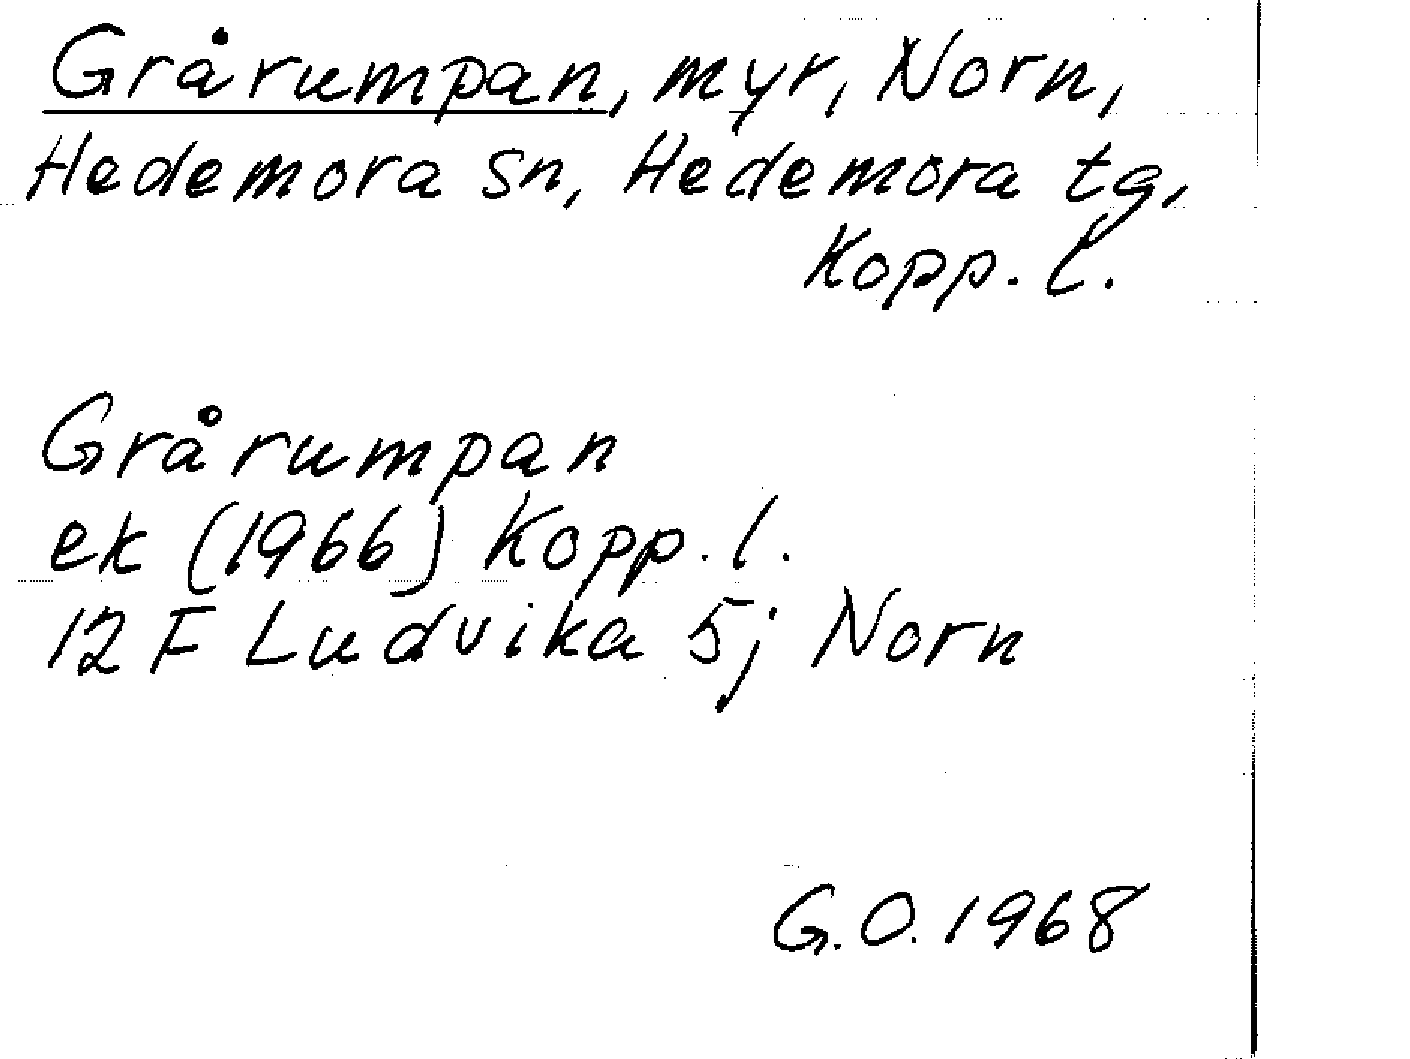 Grårumpan, myr, Norn,
Hedemora sn, Hedemora tg,
Kopp. l.
Grårumpan
ek (1966) Kopp. l.
12 F Ludvika 5j Norn
G.O. 1968